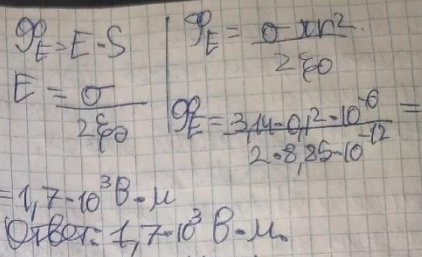 Φ_E = E · S
E = σ / 2ξ₀
Φ_E = σπr² / 2ξ₀
Φ_E = 3,14 · 0,1² · 10⁻⁶ / 2 · 8,85 · 10⁻¹² =
= 1,7 · 10³ В · м
Ответ: 1,7 · 10³ В · м.